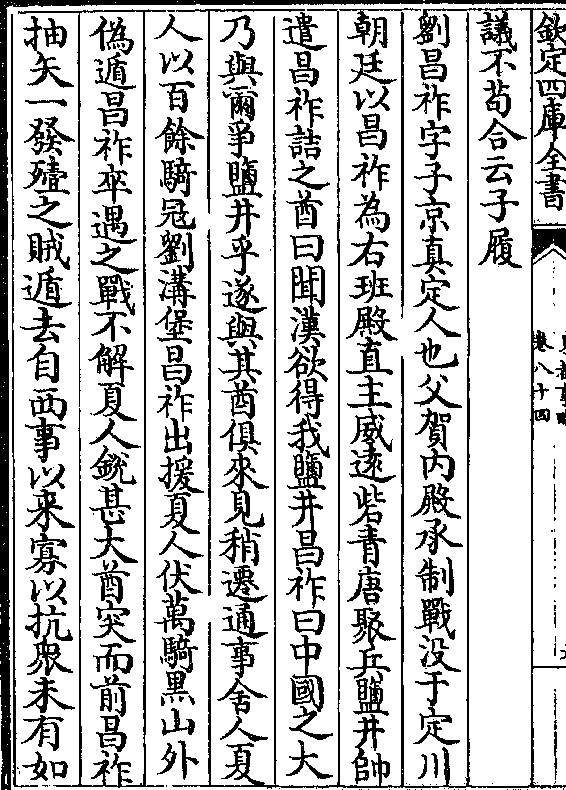 欽定四庫全書
卷八十四
議不苟合云子履
劉昌祚字子京真定人也父賀內殿承制戰没于定川
朝廷以昌祚為右班殿直主威遠砦青唐聚兵鹽井帥
遣昌祚詰之酋曰聞漢欲得我鹽井昌祚曰中國之大
乃與爾爭鹽井乎遂與其酋俱來見稍遷通事舍人夏
人以百餘騎冦劉溝堡昌祚出援夏人伏萬騎黒山外
偽遁昌祚卒遇之戰不解夏人銳甚大酋突而前昌祚
抽矢一發殪之賊遁去自西事以来寡以抗衆未有如